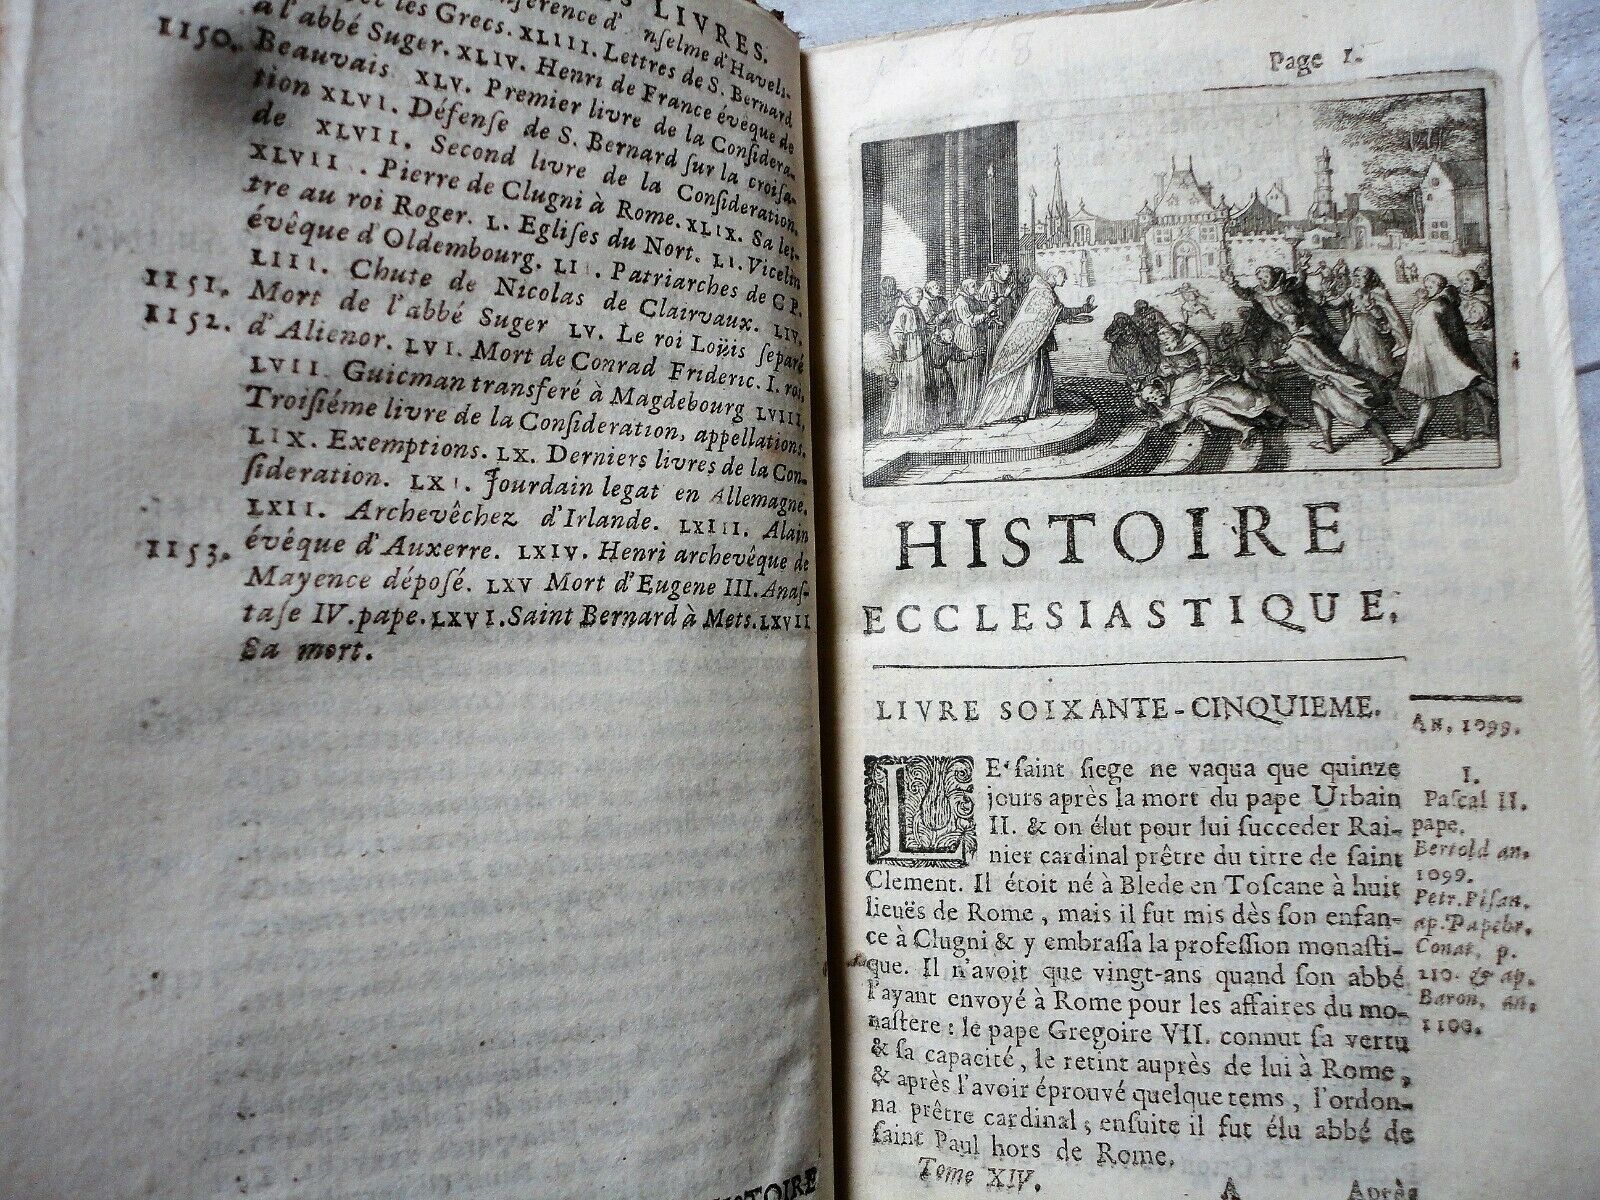 S LIVRES.
nference d' nſelme d'Havels-
et les Grecs. XLIII. Lettres de S. Bernard
à l'abbé Suger. XLIV. Henri de France évêque de
1150. Beauvais XLV. Premier livre de la Conſidera-
tion XLVI. Défenſe de S. Bernard ſur la croiſa-
de XLVII. Second livre de la Conſideration.
XLVII . Pierre de Clugni à Rome. XLIX. Sa let-
tre au roi Roger. L. Egliſes du Nort. LI. Vicelin
évêque d'Oldembourg. LI . Patriarches de C P.
LIII. Chute de Nicolas de Clairvaux. LIV.
1151. Mort de l'abbé Suger LV. Le roi Loüis ſeparé
1152. d'Alienor. LVI. Mort de Conrad Frideric. I. roi,
LVII. Guicman transferé à Magdebourg LVIII,
Troiſiéme livre de la Conſideration, appellations.
LIX. Exemptions. LX. Derniers livres de la Con-
ſideration. LXI. Jourdain legat en Allemagne.
LXII. Archevêchez d'Irlande. LXIII. Alain
évêque d'Auxerre. LXIV. Henri archevêque de
1153. Mayence dépoſé. LXV Mort d'Eugene III. Anaſ-
taſe IV. pape. LXVI. Saint Bernard à Mets. LXVII
Sa mort.
HISTOIRE
Page 1.
HISTOIRE
ECCLESIASTIQUE.
LIVRE SOIXANTE-CINQUIEME.
AN. 1099.
LE ſaint ſiege ne vaqua que quinze
jours après la mort du pape Urbain
II. & on élut pour lui ſucceder Rai-
nier cardinal prêtre du titre de ſaint
Clement. Il étoit né à Blede en Toſcane à huit
lieuës de Rome, mais il fut mis dès ſon enfan-
ce à Clugni & y embraſſa la profeſſion monaſti-
que. Il n'avoit que vingt-ans quand ſon abbé
l'ayant envoyé à Rome pour les affaires du mo-
naſtere : le pape Gregoire VII. connut ſa vertu
& ſa capacité, le retint auprès de lui à Rome,
& après l'avoir éprouvé quelque tems, l'ordon-
na prêtre cardinal ; enſuite il fut élu abbé de
ſaint Paul hors de Rome.
I.
Paſcal II.
pape.
Bertold an.
1099.
Petr. Piſan.
ap. Papebr.
Conat. p.
210. & ap.
Baron. an.
1100.
Tome XIV.
A
Après